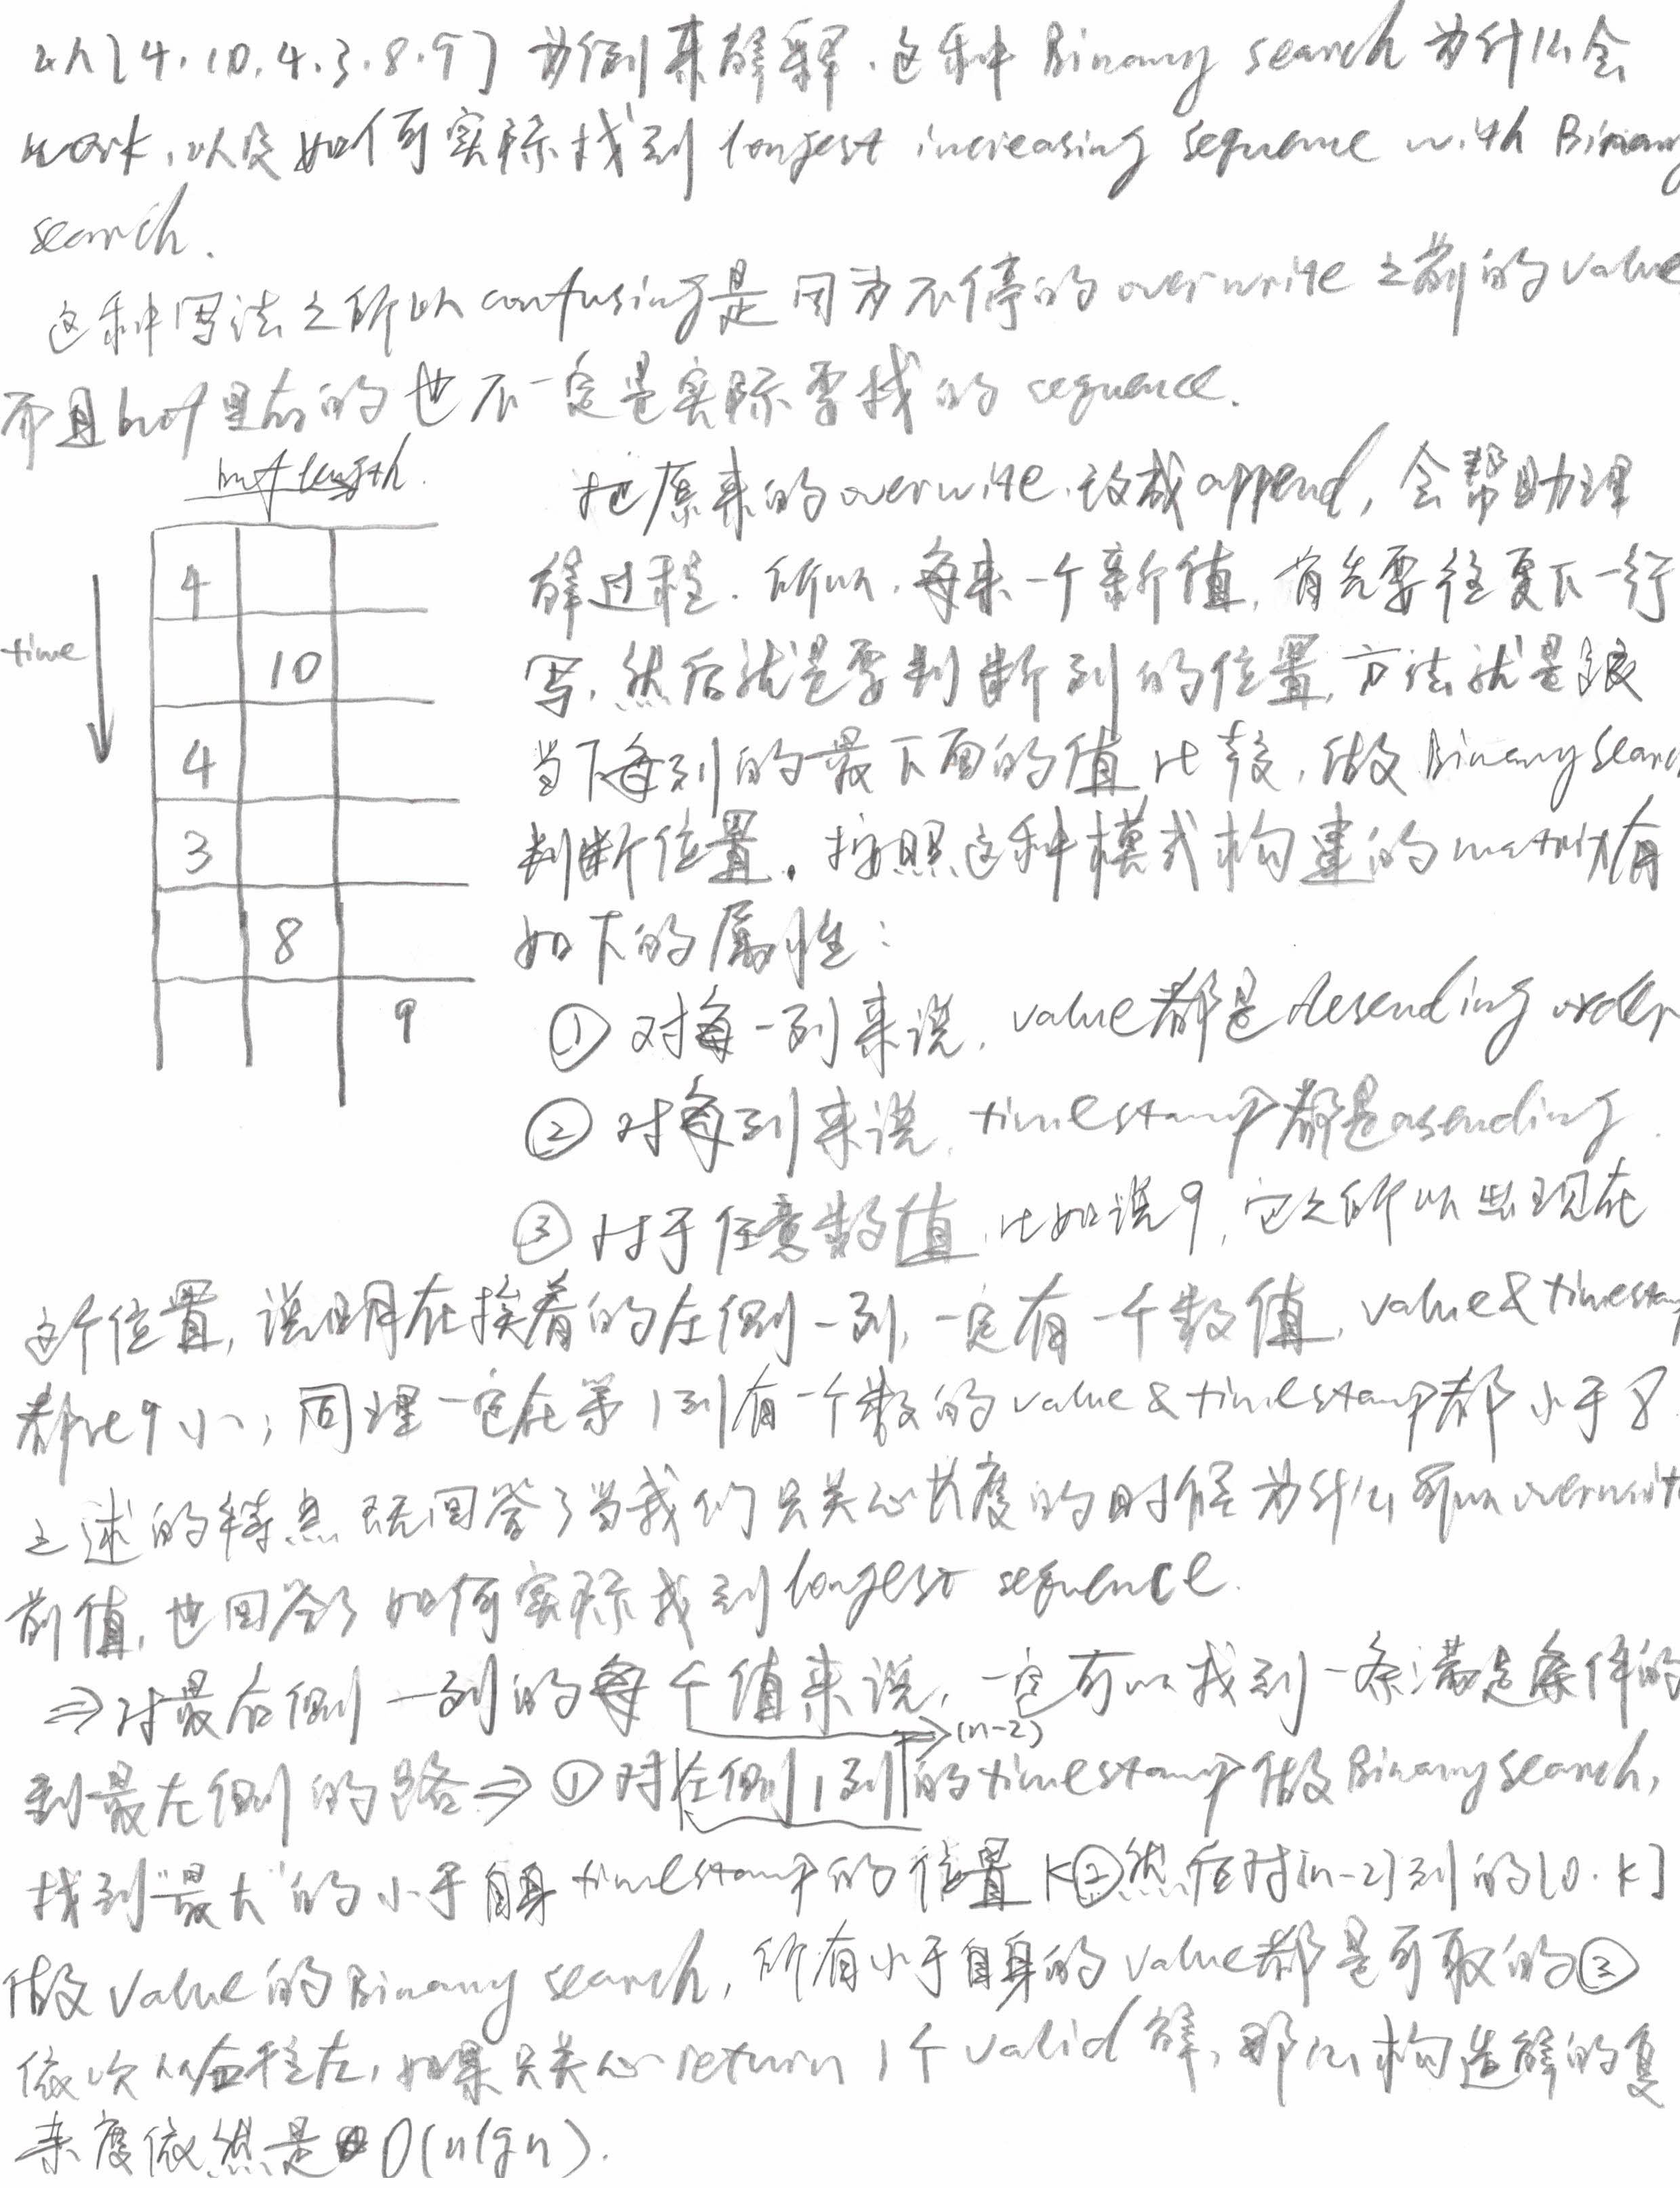 以[4.10.4.3.8.9] 为例来解释.这种 Binary search 为什么会
work,以及如何实际找到 longest increasing sequence with Binary
search.
这种写法之所以confusing是因为不停的overwrite之前的value
而且buf里存的也不一定是实际要找的 sequence.
buf length.
把原来的overwrite.改成append, 会帮助理
解过程. 所以,每来一个新值,首先要往更下一行
写.然后就是要判断列的位置,方法就是跟
当下每列的最下面的值比较,做Binary Search
判断位置. 按照这种模式构建的matrix有
如下的属性:
time
4
10
4
3
8
9
① 对每一列来说. value都是desending order
② 对每列来说, timestamp都是asending.
③ 对于任意数值,比如说9,它之所以出现在
这个位置,说明在挨着的左侧一列,一定有一个数值,value&timestamp
都比9小;同理一定在第1列有一个数的value&timestamp都小于8
上述的特点既回答了当我们只关心长度的时候为什么可以overwrite
前值,也回答了如何实际找到longest sequence.
⇒对最右侧一列的每个值来说,一定可以找到一条满足条件的
(n-2)
到最左侧的路⇒①对左侧1列的timestamp做Binary search,
找到"最大"的小于自身timestamp的位置k②然后对[n-2]列的[0.k]
做value的Binary search,所有小于自身的value都是可取的③
依次从右往左,如果只关心return 1个valid解,那么构造解的复
杂度依然是O(nlgn).